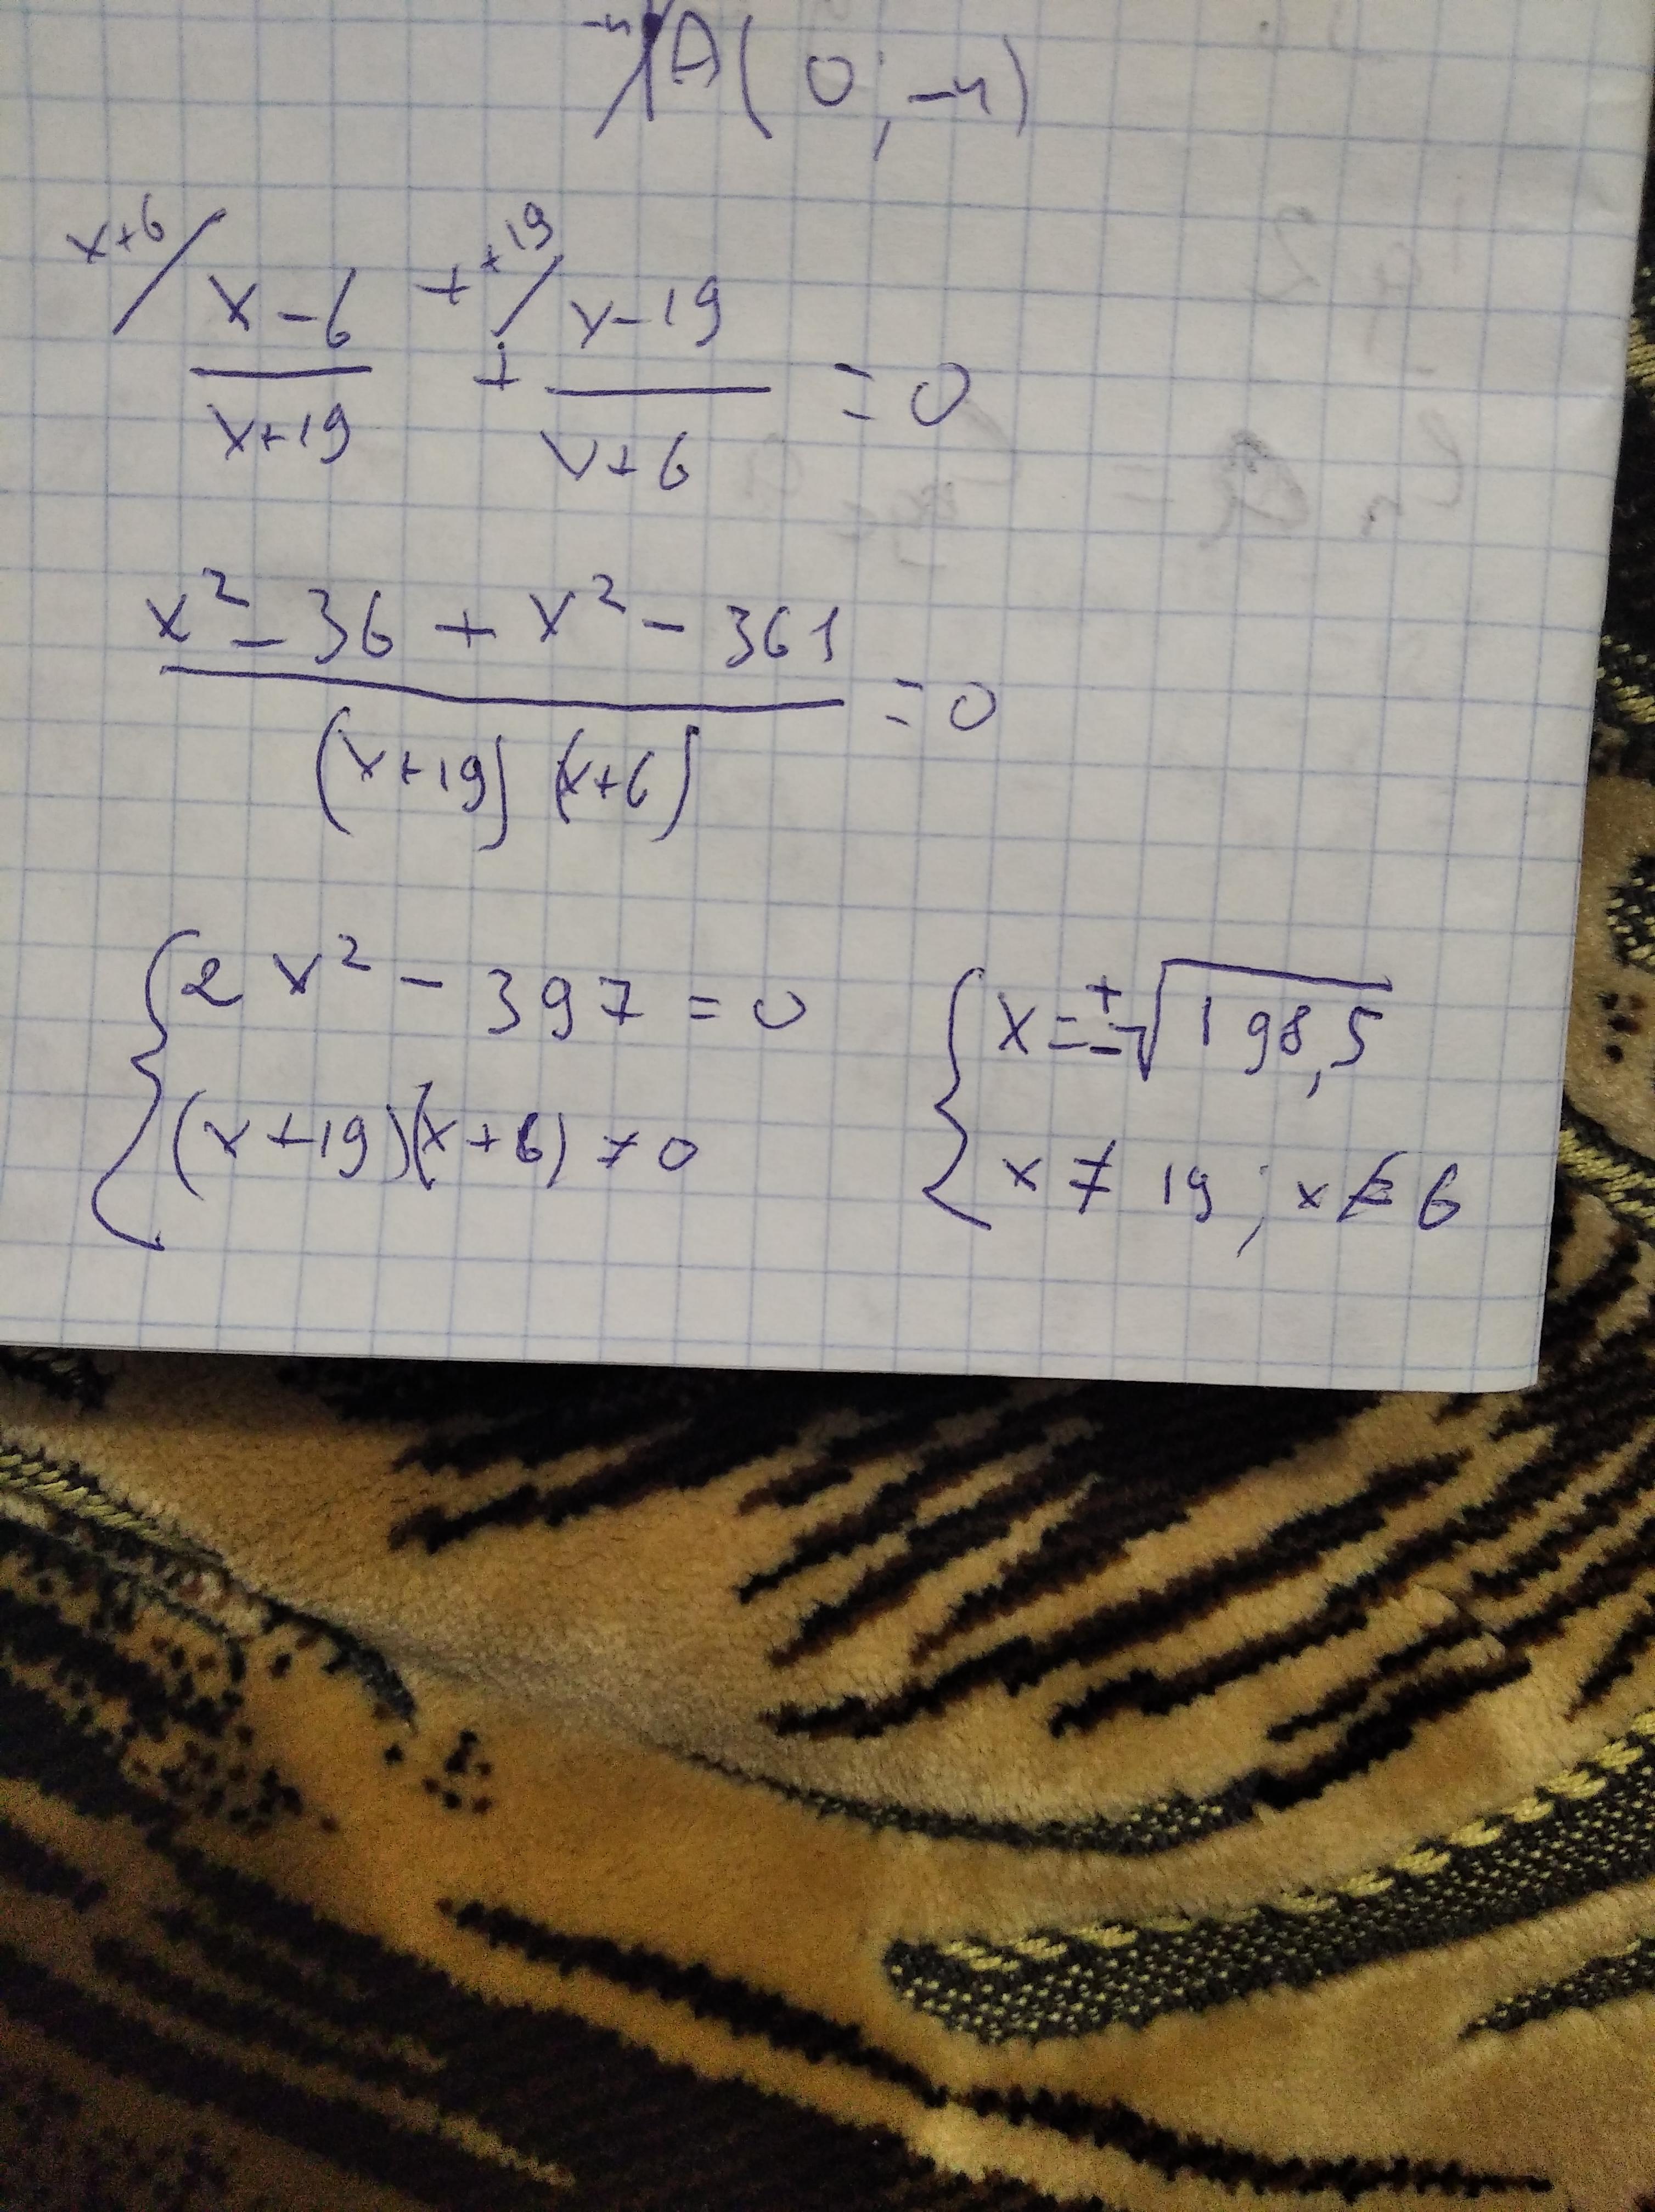 -4 A(0;-4)
x+6/ x-6 + x+19/ x-19
+ = 0
x+19 x+6
x² - 36 + x² - 361
= 0
(x+19)(x+6)
2x² - 397 = 0 x = ±√198,5
(x+19)(x+6) ≠ 0 x ≠ 19; x ≠ 6